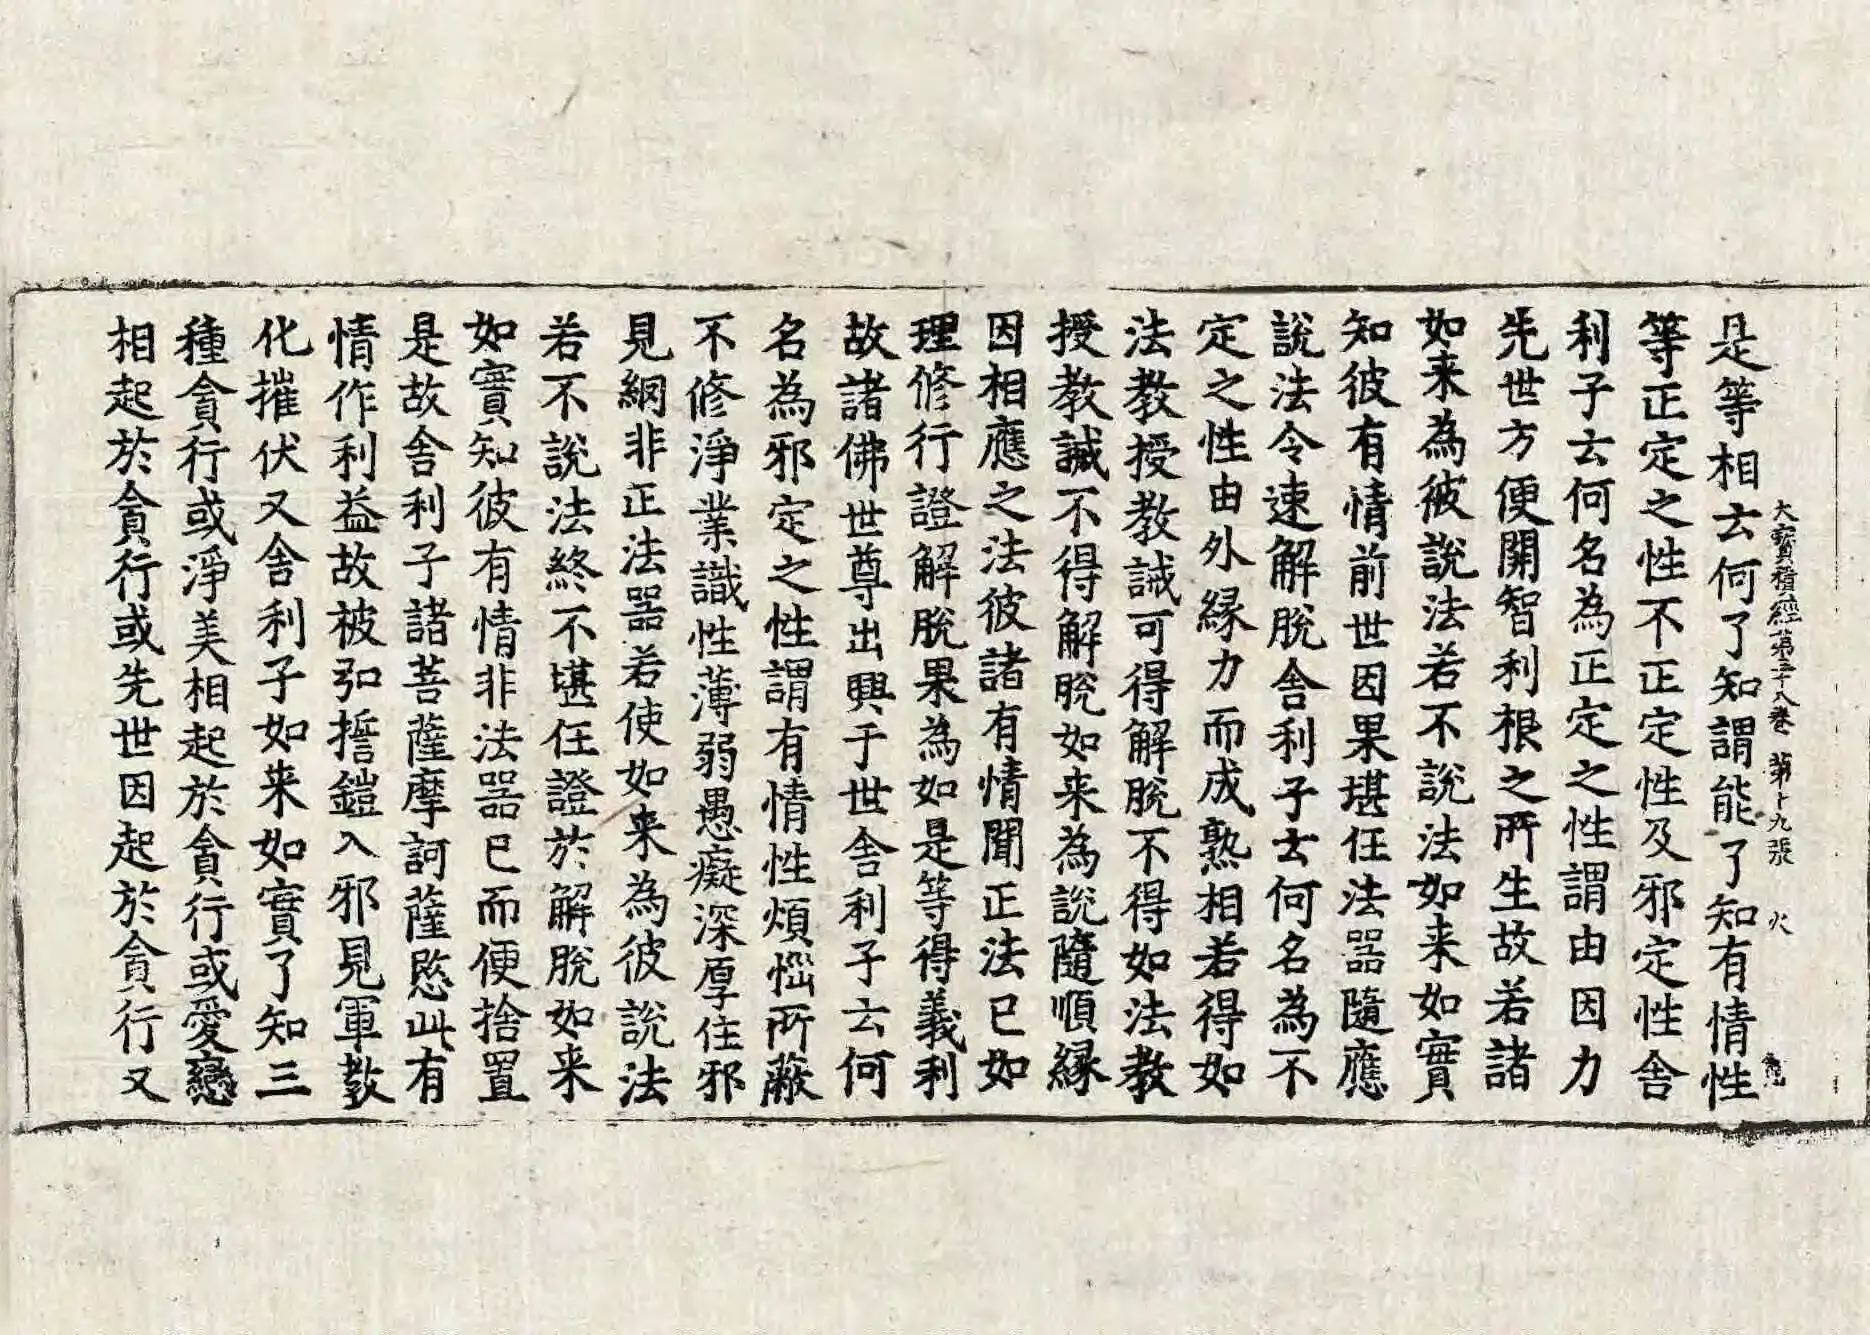 是等相云何了知謂能了知有情性
大寶積經第三十八卷 第十九張 火
等正定之性不正定性及邪定性舍
利子云何名為正定之性謂由因力
先世方便開智利根之所生故若諸
如来為彼說法若不說法如来如實
知彼有情前世因果堪任法器隨應
說法令速解脫舍利子云何名為不
定之性由外緣力而成熟相若得如
法教授教誡可得解脫不得如法教
授教誡不得解脫如来為說隨順緣
因相應之法彼諸有情聞正法已如
理修行證解脫果為如是等得義利
故諸佛世尊出興于世舍利子云何
名為邪定之性謂有情性煩惱所蔽
不修淨業識性薄弱愚癡深厚住邪
見網非正法器若使如来為彼說法
若不說法終不堪任證於解脫如来
如實知彼有情非法器已而便捨置
是故舍利子諸菩薩摩訶薩愍此有
情作利益故被弘誓鎧入邪見軍教
化摧伏又舍利子如来如實了知三
種貪行或淨美相起於貪行或愛戀
相起於貪行或先世因起於貪行又